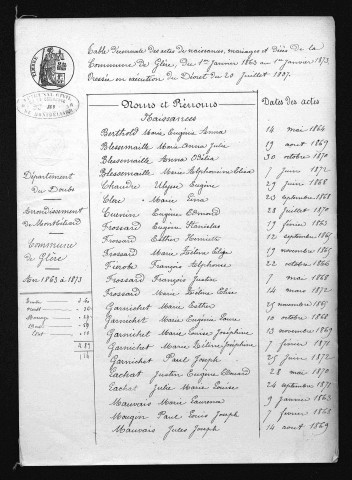 Table décennale des actes de naissances, mariages et décès de la
Commune de Glère, du 1er Janvier 1863 au 1er Janvier 1873.
Dressée en exécution du Décret du 20 Juillet 1807.
Noms et Prénoms
Dates des actes
Naissances
Berthold Marie Eugénie Anna 14 mai 1864
Blessemaille Marie Julie 19 août 1869
Blessemaille Anna Odélia 30 octobre 1870
Blessemaille Marie 7 juin 1872
Chaudre Ulysse Eugène 29 juin 1868
Clerc Marie 23 septembre 1868
Cuenin Eugène Edmond 28 juillet 1870
Frossard Eugène Stanislas 19 février 1863
Frossard Esther 12 septembre 1865
Frossard Marie 19 novembre 1865
François Alphonse 22 octobre 1866
Frossard François Justin 7 mai 1868
Frossard Marie Elise 14 mars 1872
Garnichet Marie Esther 25 novembre 1865
Garnichet Marie Eugénie Laure 10 octobre 1868
Garnichet Marie Louise Joséphine 13 novembre 1869
Garnichet Marie Joséphine 7 février 1872
Garnichet Paul Joseph 25 juin 1872
Lachat Justin Eugène Edouard 28 mai 1870
Lachat Julie Marie Louise 24 septembre
Mauvais Marie Laurence 9 janvier 1863
Mougin Paul Louis Joseph 7 février 1868
Mauvais Jules Joseph 14 août 1869
Département
du Doubs
Arrondissement
de Montbéliard
Commune
de Glère
De 1863 à 1873